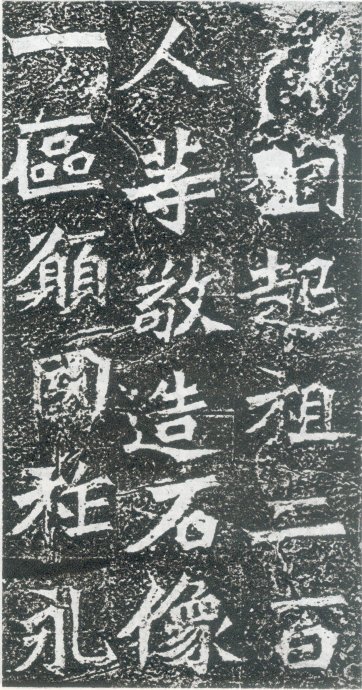 劉起祖二百
人等敬造石像
一區願國祚永